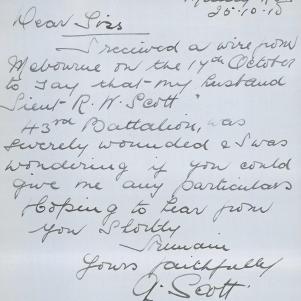 25.10.18
Dear Sirs
I received a wire from
Melbourne on the 14th October
to say that my husband
Lieut R. W. Scott "
43rd Battalion, was
severely wounded & I was
wondering if you could
give me any particulars
Hoping to hear from
you Shortly
I remain
Yours faithfully
A. Scott.